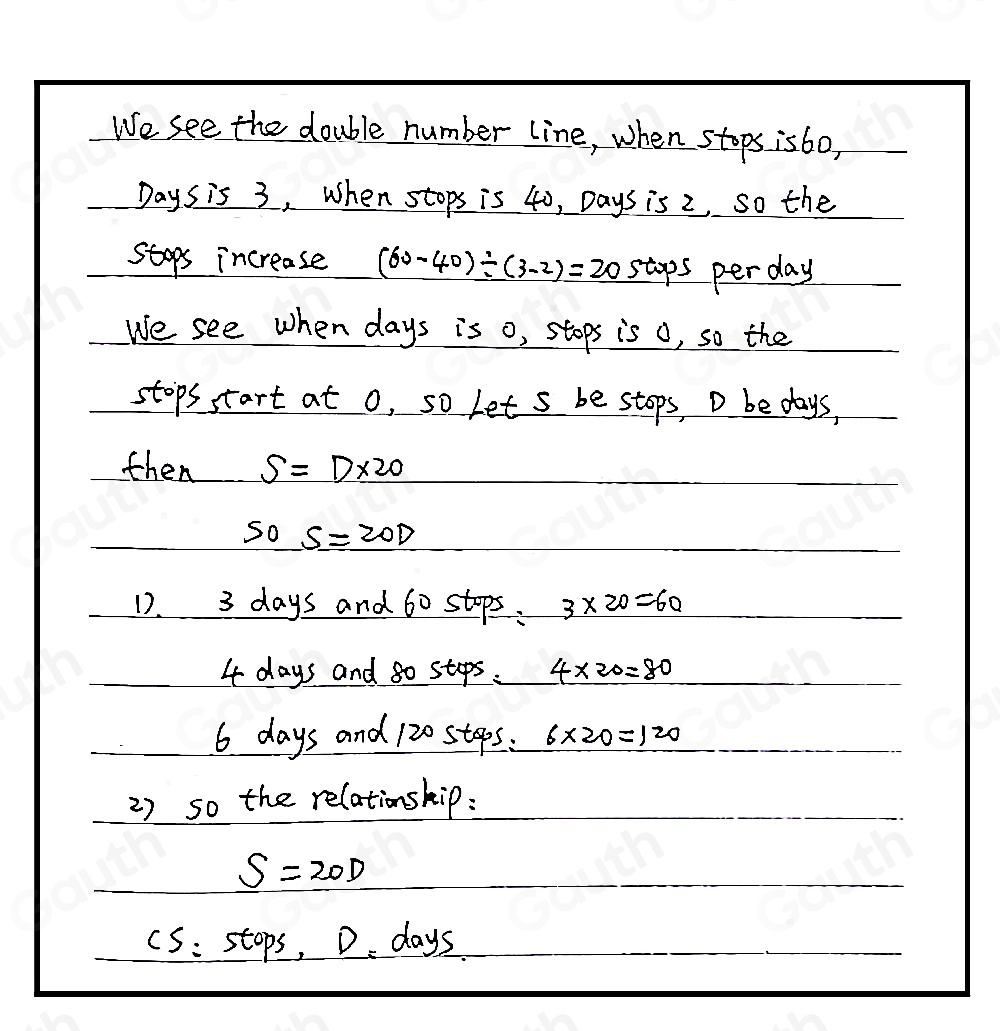 We see the double number line, when stops is 60,
Days is 3, when stops is 40, Days is 2, so the
stops increase (60-40)÷(3-2)=20 stops per day
We see when days is 0, stops is 0, so the
stops start at 0, so Let S be stops, D be days,
then S= D×20
so S=20D
1). 3 days and 60 stops: 3×20=60
4 days and 80 stops: 4×20=80
6 days and 120 stops: 6×20=120
2) so the relationship:
S=20D
(S: stops, D: days.